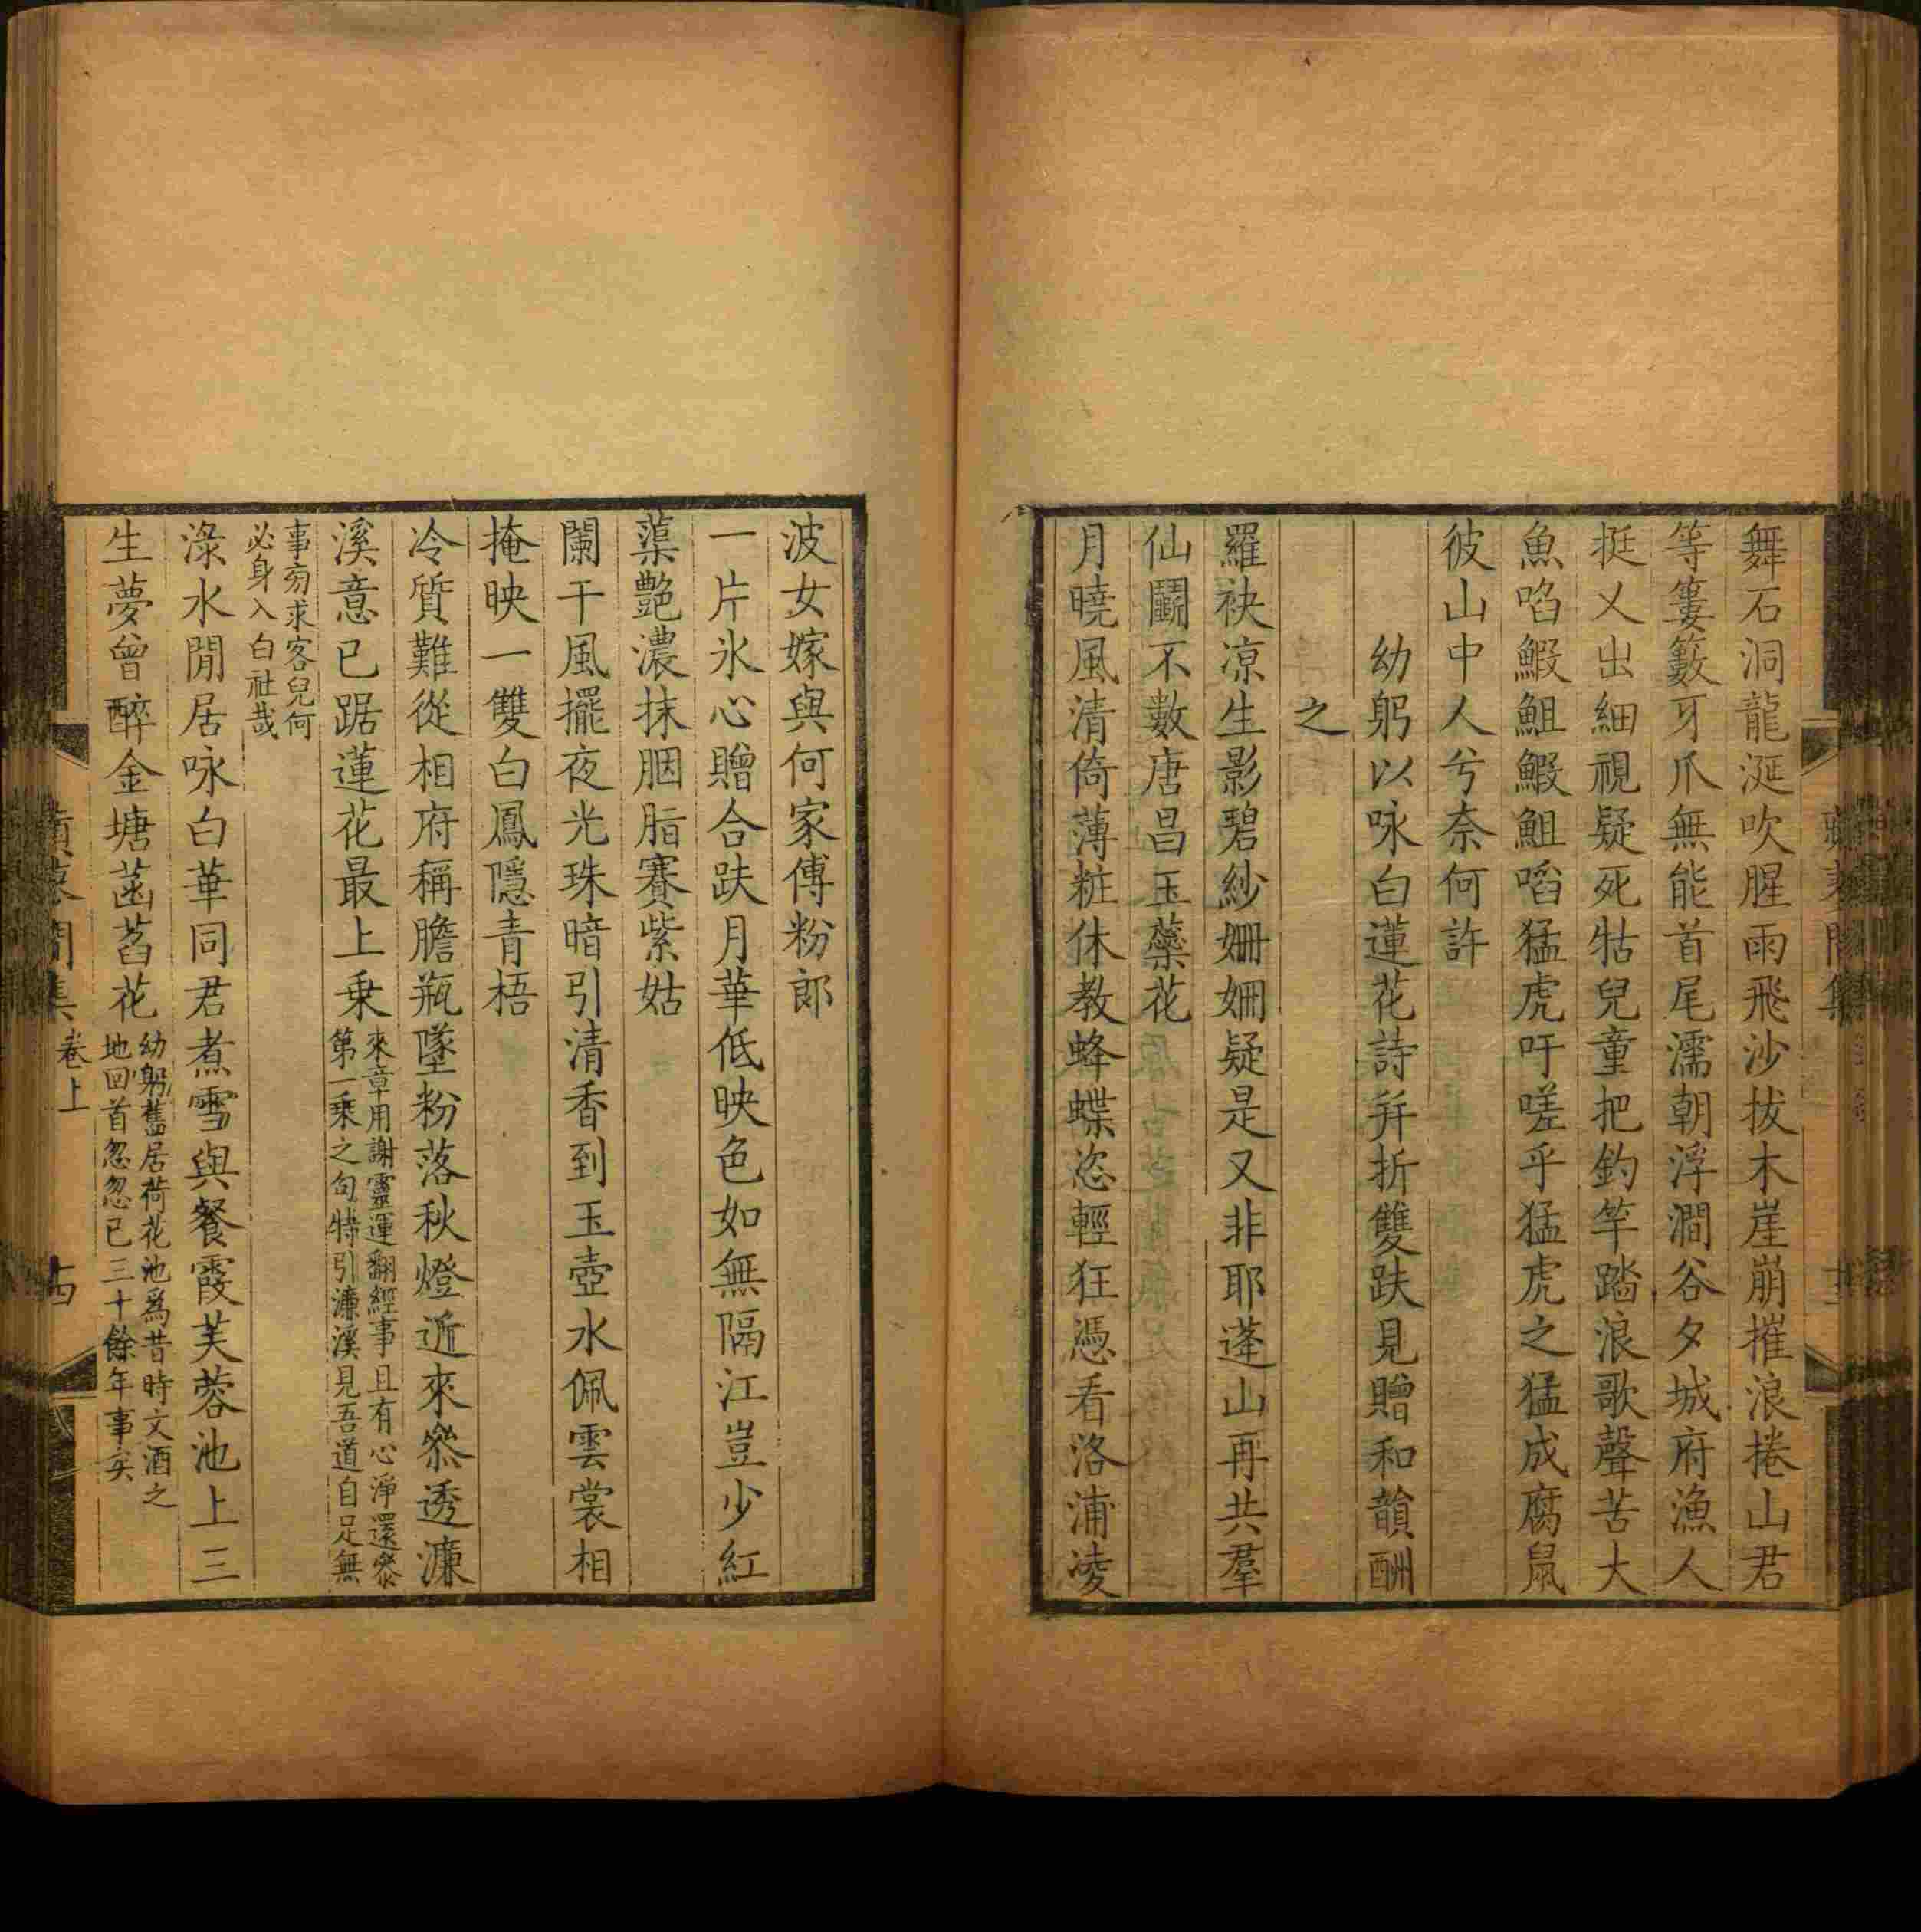 舞石洞龍涎吹腥雨飛沙拔木崖崩摧浪捲山君
等簍籔牙爪無能首尾濡朝浮澗谷夕城府漁人
挺乂出細視疑死牯兒童把釣竿踏浪歌聲苦大
魚啗鰕鉏鰕鉏嚪猛虎吁嗟乎猛虎之猛成腐鼠
彼山中人兮奈何許
幼躬以咏白蓮花詩并折雙趺見贈和韻酬
之
羅袂凉生影碧紗姍姍疑是又非耶蓬山再共羣
仙鬭不數唐昌玉蘂花
月曉風清倚薄粧休教蜂蝶恣輕狂憑看洛浦凌
波女嫁與何家傅粉郎
一片氷心贈合趺月華低映色如無隔江豈少紅
蕖艷濃抹胭脂賽紫姑
闌干風擺夜光珠暗引清香到玉壺水佩雲裳相
掩映一雙白鳳隱青梧
冷質難從相府稱膽瓶墜粉落秋燈近來叅透濂
溪意已踞蓮花最上乗
來章用謝靈運翻經事且有心淨還叅
第一乗之句特引濂溪見吾道自足無
事旁求客兒何
必身入白社哉
淥水閒居咏白華同君煮雪與餐霞芙蓉池上三
生夢曾醉金塘菡萏花
幼躬舊居荷花池爲昔時文酒之
地回首忽忽已三十餘年事矣
卷上